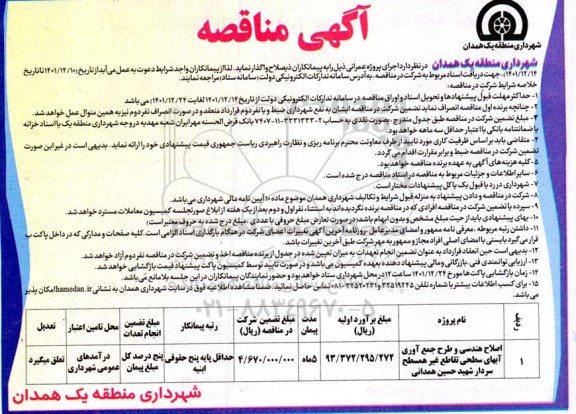 آگهی مناقصه
شهرداری منطقه یک همدان
شهرداری منطقه یک همدان در نظر دارد اجرای پروژه عمرانی ذیل را به پیمانکاران ذیصلاح واگذار نماید. لذا از پیمانکاران واجد شرایط دعوت به عمل می آید از تاریخ ۱۴۰۱/۱۲/۱۰ تا تاریخ
۱۴۰۱/۱۲/۱۴ جهت دریافت اسناد مربوط به شرکت در مناقصه، به آدرس سامانه تدارکات الکترونیکی دولت (سامانه ستاد) مراجعه نمایند.
خلاصه شرایط شرکت در مناقصه:
۱- حداکثر مهلت قبول پیشنهادها و تحویل اسناد و اوراق مناقصه در سامانه تدارکات الکترونیکی دولت از تاریخ ۱۴۰۱/۱۲/۱۴ لغایت ۱۴۰۱/۱۲/۲۴ می باشد
۲- چنانچه برنده اول مناقصه انصراف نماید تضمین شرکت در مناقصه ایشان به نفع شهرداری ضبط و با نفر دوم قرارداد منعقد و در صورت انصراف نفر دوم نیز به همین منوال عمل خواهد شد.
۳- مبلغ تضمین شرکت در مناقصه طبق جدول مندرج بصورت نقدی به حساب ۲-۳۳۳۱۳۳۳-۱۱-۷۴۰۷ بانک قرض الحسنه مهر ایران شعبه مهدیه در وجه شهرداری منطقه یک یا اسناد خزانه
یا ضمانتنامه بانکی با اعتبار حداقل سه ماهه خواهد بود.
۴- متقاضی باید بر اساس ظرفیت کاری مورد تایید از طرف معاونت محترم برنامه ریزی و نظارت راهبردی ریاست جمهوری قیمت پیشنهادی خود را ارائه نماید. بدیهی است در غیر این صورت
تضمین شرکت در مناقصه ضبط و برابر مقررات اقدام می گردد.
۵- کلیه هزینه های آگهی به عهده برنده مناقصه خواهد بود.
۶- سایر اطلاعات و جزئیات مربوط به مناقصه در اسناد مناقصه درج شده است.
۷- شهرداری در رد یا قبول یک یا کل پیشنهادات مختار است.
۸- شرکت در مناقصه و دادن پیشنهاد به منزله قبول شرایط و تکالیف شهرداری همدان موضوع ماده ۱۰ آیین نامه مالی شهرداری می باشد.
۹- سپرده یا تضمین شرکت در مناقصه افرادی که در مناقصه برنده نگردیده اند به استثناء نفر اول و دوم بعد از یک هفته از ابلاغ صورتجلسه کمیسیون معاملات مسترد خواهد شد.
۱۰- بهای پیشنهادی باید از حیث مبلغ مشخص و بدون ابهام باشد (در صورت تعارض مبلغ حروفی با عددی، مبلغ درج شده به حروف معتبر است)
۱۱- داشتن رتبه مربوطه، معرفی نامه ممهور و امضای مدیرعامل، روزنامه آخرین آگهی تغییرات اعضای شرکت در هنگام بارگذاری اسناد الزامی است. کلیه صفحات و مدارکی که در داخل پاکت ب
قرار می گیرد بایستی با امضای اصلی افراد مجاز و ممهور به مهر شرکت طبق آخرین تغییرات باشد.
۱۲- بدیهی است حین انعقاد قرارداد به عنوان تضمین انجام تعهدات به میزان تعیین شده در جدول از برنده مناقصه اخذ و تضمین شرکت در مناقصه نفر دوم آزاد خواهد شد.
۱۳- ارزیابی توانمندی فنی، بازرگانی و مالی پیشنهاد دهنده به عهده کمیسیون می باشد و در صورت تایید توسط کمیسیون پاکت پیشنهاد قیمت بازگشایی خواهد شد.
۱۴- زمان بازگشایی پاکت ها مورخ ۱۴۰۱/۱۲/۲۴ ساعت ۱۲ در محل شهرداری ستاد خواهد بود و حضور نمایندگان پیمانکاران در این جلسه بلامانع می باشد.
۱۵- برای کسب اطلاعات بیشتر با شماره تلفن تماس حاصل نمایید. ضمنا مشاهده اطلاعیه فوق در سایت شهرداری همدان به نشانی hamedan.ir امکان پذیر
می باشد.
ردیف نام پروژه مبلغ برآورد اولیه (ریال) مدت پیمان مبلغ تضمین شرکت در مناقصه (ریال) رتبه پیمانکار مبلغ تضمین انجام تعهدات محل تامین اعتبار تعدیل
۱ اصلاح هندسی و طرح جمع آوری آبهای سطحی تقاطع غیر همسطح سردار شهید حسین همدانی ۹۳/۳۷۲/۲۹۵/۲۷۲ ۵ ماه ۴/۶۷۰/۰۰۰/۰۰۰ حداقل پایه پنج حقوقی ابنیه پنج درصد کل مبلغ پیمان درآمدهای عمومی شهرداری تعلق میگیرد
شهرداری منطقه یک همدان
۰۲۱-۸۸۳۴۹۶۷۰-۵